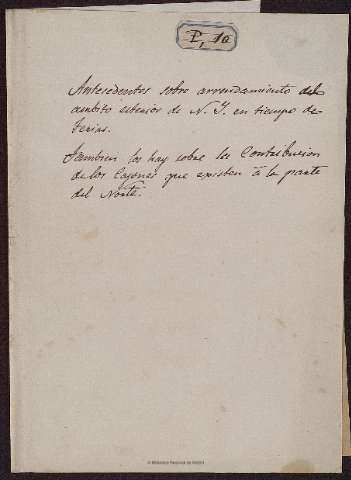 P, 10
Antesedentes sobre arrendamiento del
ambito esterior de N. Y. en tiempo de
ferias.
Tambien los hay sobre los Contribucion
de los Cajones que existen á la parte
del Norte.
© Biblioteca Nacional de España